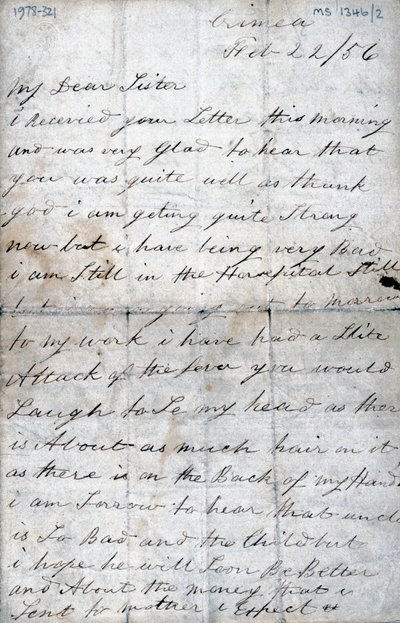 1978-321
MS 1346/2
Crimea
Feb 22/56
My Dear Sister
i Recevied your Letter this Morning
and was very Glad to hear that
you was quite well as thank
god i am geting quite Strong
now but i have being very Bad
i am Still in the Horspital Still
but i am going out to Morrow
to my work i have had a Slite
Attack of the fever you would
Laugh to Se my head as ther
is About as much hair on it
as there is on the Back of my Hand
i am Sorrow to hear that uncle
is So Bad and the Child but
i hope he will Soon Be Better
and About the money that is
Sent to mother i Expect it